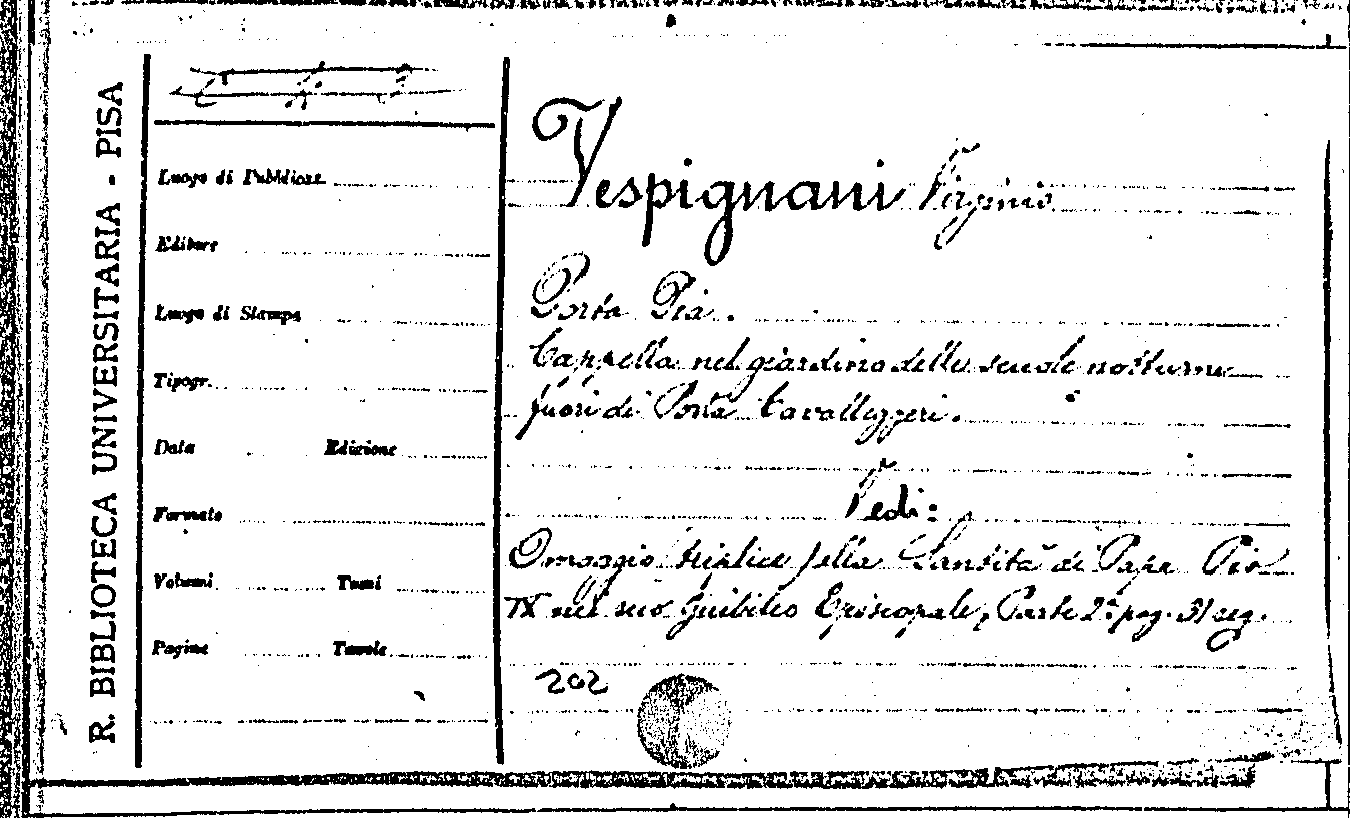 R. BIBLIOTECA UNIVERSITARIA - PISA
Luogo di Pubblicaz.
Editore
Luogo di Stampa
Tipogr.
Data Edizione
Formato
Volumi Tomi
Pagine Tavole
Vespignani Virginio
Porta Pia.
Cappella nel giardino delle scuole notturne
fuori di Porta Cavalleggeri.
Vedi:
Omaggio triplice alla Santità di Papa Pio
IX nel suo Giubileo Episcopale, Parte 2ª pag. 31 seg.
202